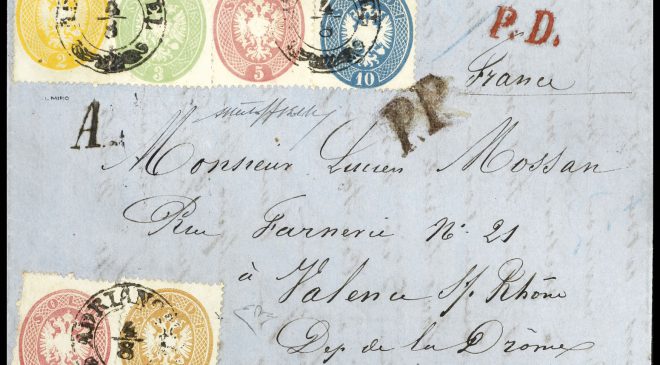 2 3 5 10
P.D.
France
L MIRO
A.
P.P.
Monsieur Lucien Mossan
Rue Farnerie N° 21
à Valence s/ Rhône
Dep de la Drôme
ADRIANO